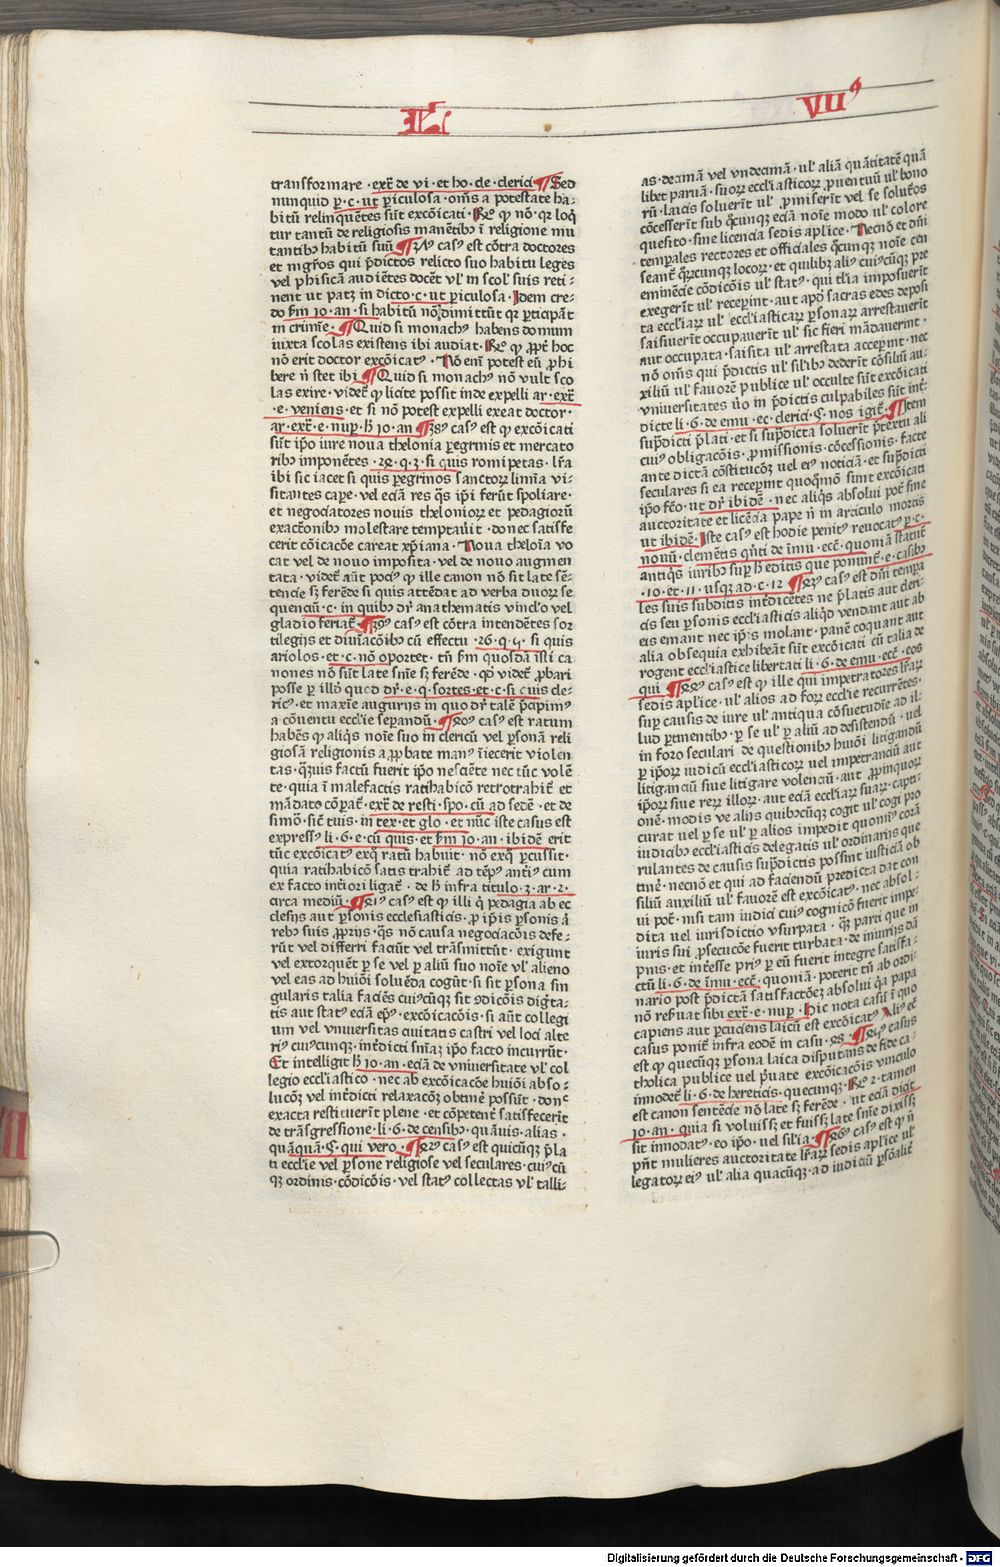 L̄i
VIIꝰ
transformare · exͬ de vi · et ho · de · cleric̄ ¶ Sed
nunquid ꝑ · c · ut ꝑiculosa · om̄s a potestate ha⸗
bitū relinquētes sūt excōicati · Rͦ ꝙ nō · qꝛ loq̄
tur tantū de religiosis manētibꝫ ī religione mu
tantibꝫ habitū suū ¶ casꝰ est cōtra doctores
et mgr̄os qui p̄dictos relicto suo habitu leges
vel phisicā audiētes docēt vl̓ in scol̓ suis reti⸗
nent ut patꝫ in dicto · c · ut ꝑiculosa · Idem cre⸗
do s̄m Jo · an · si habitū nō dimittūt qꝛ ꝑticipāt
in crimīe · ¶ Quid si monachꝰ habens domum
iuxta scolas existens ibi audiat · Rͦ ꝙ ꝓpt̄ hoc
nō erit doctor excōicatꝰ · Nō em̄ potest eū ꝓhi
bere n̄ stet ibi ¶ Quid si monachꝰ nō vult sco
las exire · videt̄ ꝙ licite possit inde expelli ar · exͬ
· e · veniens · et si nō potest expelli exeat doctor ·
ar · exͬ · e · nuꝑ · h̄ Jo · an ¶ casꝰ est ꝙ excōicati
sūt ip̄o iure noua thelonia ꝑegrinis et mercato
ribꝫ imponētes · 24 · q · 3 · si quis romipetas · lr̄a
ibi sic iacet si quis ꝑegrinos sanctoꝝ limīa vi⸗
sitantes caꝑe · vel eciā res q̄s ip̄i ferūt spoliare ·
et negociatores nouis thelonioꝝ et pedagiorū
exactōnibꝫ molestare temptaūit · donec satisfe
cerit cōicacōe careat xp̄iana · Noua theloīa vo
cat vel de nouo imposita · vel de nouo augmen
tata · videt̄ aūt pociꝰ ꝙ ille canon nō sit late sē⸗
tencie sꝫ ferēde si quis attēdat ad verba duoꝝ se
quenciū · c · in quibꝫ dr̄ anathematis vinclo vel
gladio feriat̄ · ¶ casꝰ est cōtra intendētes sor
tilegijs et diuīacōibꝫ cū effectu · 26 · q · 5 · si quis
ariolos · et · c · nō oportet · tn̄ s̄m quosdā isti ca
nones nō sūt late sn̄ie sꝫ ferēde · qͩ videt̄ ꝓbari
posse ꝑ illō quod dr̄ · e · q · sortes · et · c · si quis cle⸗
ricꝰ · et maxīe augurijs in quo dr̄ talē p̄cipimꝰ
a cōuentu ecclīe sepandū · ¶ casꝰ est ratum
habēs ꝙ aliq̄s noīe suo in clericū vel ꝑsonā reli
giosā religionis a ꝓbate manꝰ īiecerit violen
tas · q̄uis factū fuerit ip̄o nesciēte nec tūc volē
te · quia ī malefactis ratihabicō retrotrahit̄ et
mādato cōparat̄ · exͬ de resti · spo · cū ad sedē · et de
simō · sic̄ tuis · in tex · et glo · et nūc iste casus est
expressꝰ li · 6 · e · cū quis · et s̄m Jo · an · ibidē erit
tūc excōicatꝰ exq̄ ratū habuit · nō exq̄ ꝑcussit ·
quia ratihabicō satis trahit̄ ad tēpꝰ anteriꝰ cum
ex facto int̄iori ligat̄ · de h̄ infra titulo · 3 · ar · 2 ·
circa mediū · ¶ casꝰ est ꝙ illi q̄ pedagia ab ec
clesijs aut ꝑsonis ecclesiasticis · ꝓ ip̄is ꝑsonis ⁊
rebꝫ suis ꝓprijs · q̄s nō causa negociacōis defe⸗
rūt vel differri faciūt vel trāsmittūt · exigunt
vel extorquēt ꝑ se vel ꝑ aliū suo noīe vl̓ alieno
vel eas ad huiōi soluēda cogūt · si sit ꝑsona sin
gularis talia faciēs cuiꝰcūqꝫ sit ꝯdicōis digta⸗
tis aut statꝰ eciā ep̄ꝰ · excōicacōis · si aūt collegi
um vel vniuersitas ciuitatis castri vel loci alte
riꝰ cuiꝰcumqꝫ · int̄dicti sn̄iaꝫ ip̄o facto incurrūt ·
Et intelligit h̄ Jo · an · eciā de vniuersitate vl̓ col
legio eccl̓iastico · nec ab excōicacōe huiōi abso⸗
lucōꝫ vel int̄dicti relaxacōꝫ obtinē possūt · donᶜ
exacta restituerīt plene · et cōpetenṫ satisfecerīt
de trāsgressione · li · 6 · de censibꝫ · quāuis · alias ·
quāquā · §. qui vero · ¶ casꝰ est quicūqꝫ p̄la
ti ecclīe vel ꝑsone religiose vel seculares · cuiꝰcū
qꝫ ordinis · cōdicōis · vel statꝰ collectas vl̓ talli⸗
as · decimā vel vndecimā · ul̓ aliā quātitatē quā
libet paruā · suoꝝ eccl̓iasticoꝝ ꝓuentuū ul̓ bono
rū · laicis soluerīt ul̓ ꝓmiserīt vel se solutōs
cōcesserīt sub q̄cunqꝫ eciā noīe modo ul̓ colore
quesito · sine licencia sedis aplice · Necnō et dn̄i
temꝑales rectores et officiales q̄cunqꝫ noīe cen
seant̄ q̄rūcunqꝫ locoꝝ · et quilibꝫ aliꝰ cuiꝰcūqꝫ pre
eminēcie cōdicōis ul̓ statꝰ · qui tl̓ia imposuerīt
exegerīt ul̓ receperīt · aut apd̓ sacras edes deposi
ta eccl̓iaꝝ ul̓ eccl̓iasticaꝝ ꝑsonaꝝ arrestauerīt
saisiuerīt occupauerīt ul̓ sic fieri mādauerīnt ·
aut occupata · saisita ul̓ arrestata acceperīt · nec
nō om̄s qui p̄dictis ul̓ sil̓ibꝫ dederīt cōsiliū au⸗
xiliū ul̓ fauorē publice ul̓ occulte sūt excōicati
· vniuersitates u̓o in p̄dictis culpabiles sūt int̄⸗
dicte li · 6 · de emu · ec · cleric̄ · §. nos igit̄ · ¶ Item
sup̄dicti p̄lati · et si sup̄dicta soluerīt p̄textu ali
cuiꝰ obligacōis · ꝓmissionis · cōcessionis · facte
ante dictā cōstitucōꝫ uel eiꝰ noticiā · et sup̄dicti
seculares si ea receperīt quoq̄mō sunt excōicati
ip̄o fc̄o · ut dr̄ ibidē · nec aliq̄s absolui pot̄ sine
auctoritate et licēcia pape n̄ in articulo mortis
ut ibidē · Iste casꝰ est hodie penitꝰ reuocatꝰ ꝑ · c ·
nonū · clemētis qn̄ti de īmu · ecc̄ · quoniā statut̄
antiq̄s iuribꝫ suꝑ h̄ editis que ponunt̄ · e · casibꝫ
· 10 · et · 11 · usqꝫ ad · c · 12 ¶ casꝰ est dn̄i temꝑa
les suis subditis int̄dicētes ne p̄latis aut cleri⸗
cis seu ꝑsonis eccl̓iasticis aliq̓d vendant aut ab
eis emant nec ip̄is molant · panē coquant aut
alia obsequia exhibeāt sūt excōicati cū talia de
rogent eccl̓iastice libertati li · 6 · de emu · ecc̄ · eos
qui ¶ casꝰ est ꝙ ille qui impetratores lr̄aꝝ
sedis aplice · ul̓ alios ad foꝝ ecclīe recurrētes ·
suꝑ causis de iure ul̓ antiqua cōsuetudīe ad il⸗
lud ꝑtinentibꝫ · ꝑ se ul̓ ꝑ aliū ad desistendū · uel
in foro seculari de questionibꝫ huiōi litigandū
ꝑ ip̄oꝝ iudicū eccl̓iasticoꝝ uel impetranciū aut
litiganciū siue litigare volenciū · aut ꝓpinquoꝝ
ip̄oꝝ siue reꝝ illoꝝ · aut eciā eccl̓iaꝝ suaꝝ · capti⸗
onē · modis ve alijs quibꝫcūqꝫ cogit ul̓ cogi pro
curat uel ꝑ se ul̓ ꝑ alios impedit quomīꝰ corā
iudicibꝫ eccl̓iasticis delegatis ul̓ ordinarijs que
rulantes de causis sup̄dictis possint iusticiā ob
tinē̓ · necnō et qui ad faciendū predicta dat con
siliū auxiliū ul̓ fauorē est excōicatꝰ · nec absol⸗
ui pot̄ · nisi tam iudici cuiꝰ cognicō fuerit impe⸗
dita uel iurisdictio vsurpata · q̄ꝫ parti que in
iuris sui ꝓsecucōe fuerit turbata · de iniurijs dā
pnis · et int̄esse priꝰ ꝑ eū fuerit integre satisfa⸗
ctū li · 6 · de īmu · ecc̄ · quoniā · poterit tn̄ ab ordi⸗
nario post p̄dictā satisfactōeꝫ absolui q̓a papa
nō refuat sibi exͬ · e · nuꝑ · Hic nota casū ī quo
capiens aut ꝑcuciens laicū est excōicatꝰ Aliꝰ ec̄
casus ponit̄ infra eodē in casu · 28 · ¶ casus
est ꝙ quecūqꝫ ꝑsona laica disputans de fide ca⸗
tholica publice uel p̓uate excōicacōis vinculo
innodet̄ li · 6 · de hereticis · quecunqꝫ · Rͦ 2 · tamen
est canon sentēcie nō late sꝫ ferēde · ut eciā dicit
Jo · an · quia si voluissꝫ et fuissꝫ late sn̄ie dixissꝫ
sit innodatꝰ · eo ip̄o · uel sil̓ia · ¶ casꝰ est ꝙ n̄
pn̄t mulieres auctoritate lr̄aꝝ sedis aplice ul̓
legatoꝝ eiꝰ ul̓ alia quacūqꝫ · ad iudiciū ꝑsōalit̄
Digitalisierung gefördert durch die Deutsche Forschungsgemeinschaft - DFG